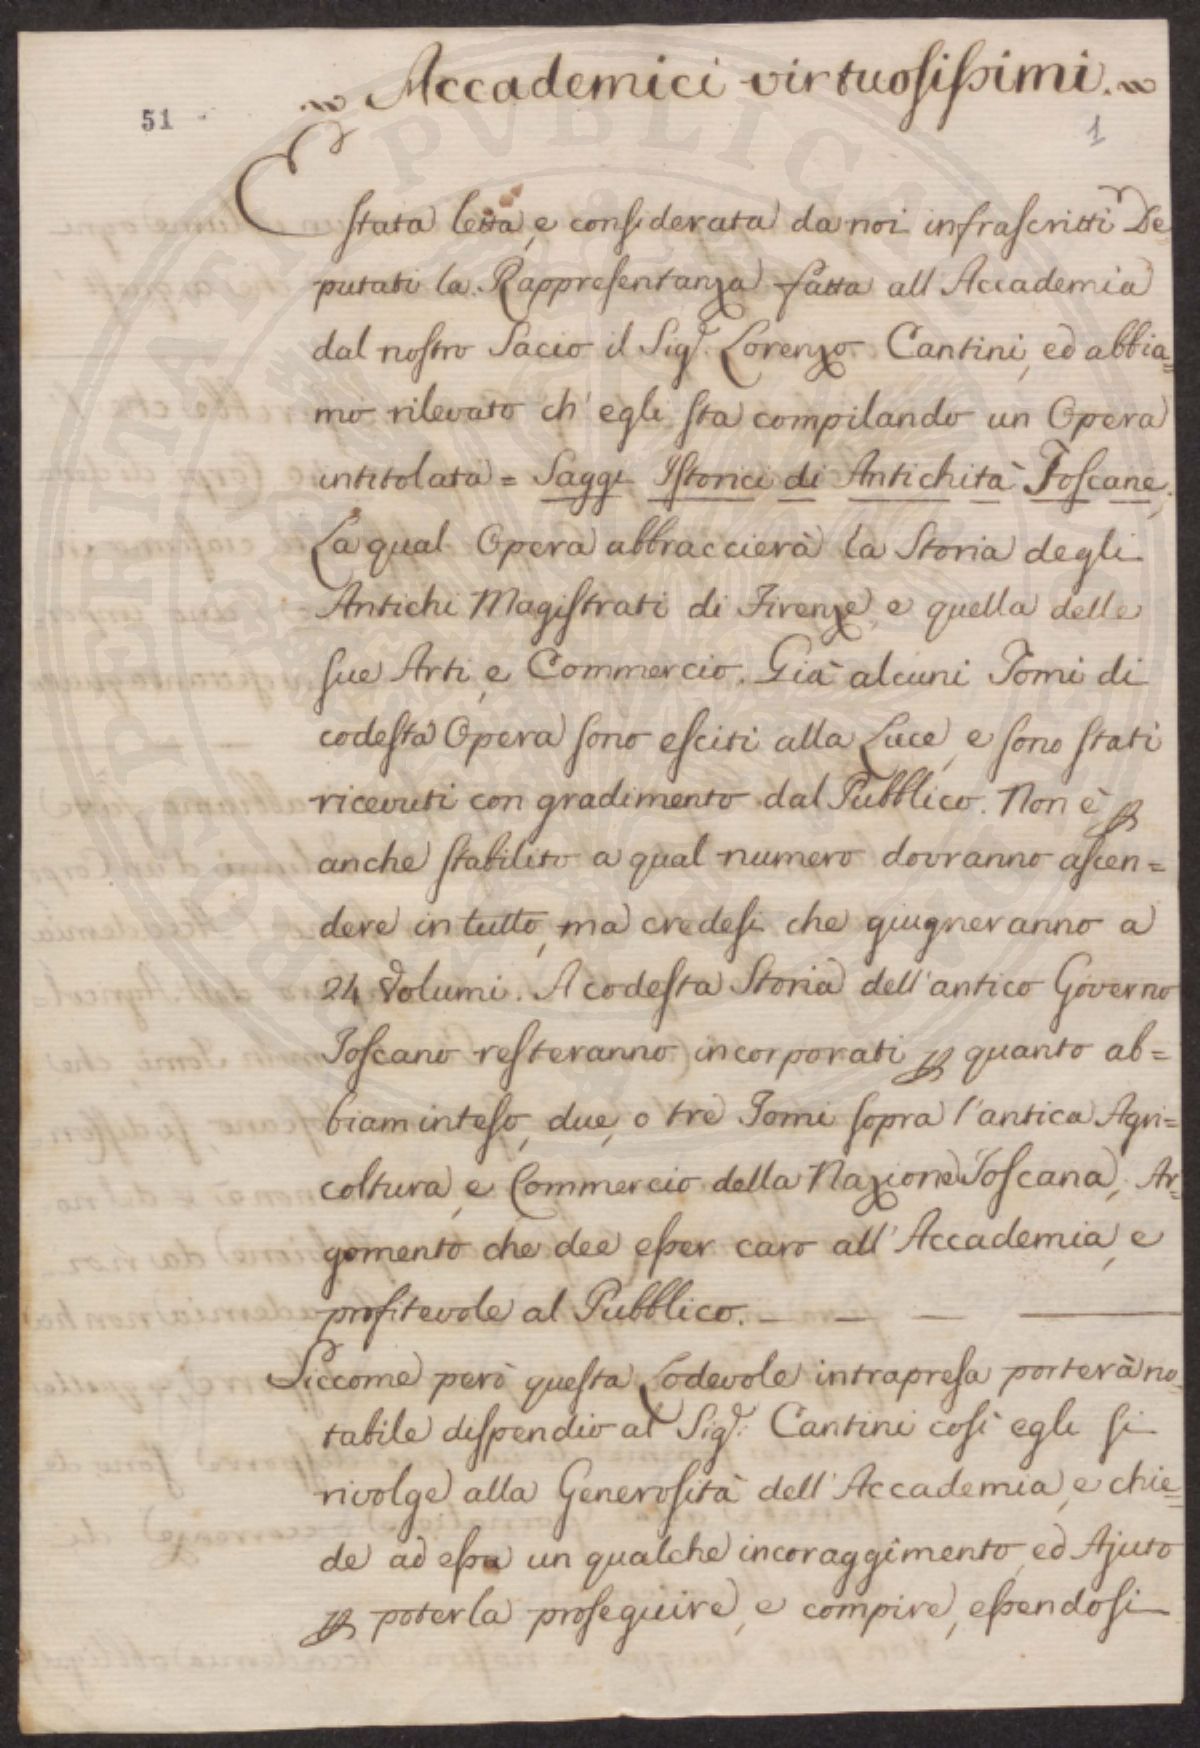 Accademici virtuosissimi.
51
1
E stata letta, e considerata da noi infrascritti De=
putati la Rappresentanza fatta all'Accademia
dal nostro Sacio il Sig.r Lorenzo Cantini, ed abbia=
mo rilevato ch'egli sta compilando un Opera
intitolata = Saggi Istorici di Antichità Toscane,
La qual Opera abbraccierà la Storia degli
Antichi Magistrati di Firenze, e quella delle
sue Arti, e Commercio. Già alcuni Tomi di
codesta Opera sono esciti alla Luce, e sono stati
ricevuti con gradimento dal Pubblico. Non è p
anche stabilito a qual numero dovranno ascen=
dere in tutto, ma credesi che giugneranno a
24 Volumi. A codesta Storia dell'antico Governo
Toscano resteranno incorporati p quanto ab=
biam inteso, due, o tre Tomi sopra l'antica Agri=
coltura, e Commercio della Nazione Toscana, Ar=
gomento che dee esser caro all'Accademia, e
profitevole al Pubblico. — — — —
Siccome però questa Lodevole intrapresa porterà no=
tabile dispendio al Sig.r Cantini così egli si
rivolge alla Generosità dell'Accademia, e chie=
de ad essa un qualche incoraggimento, ed Ajuto
p poterla proseguire, e compire, essendosi